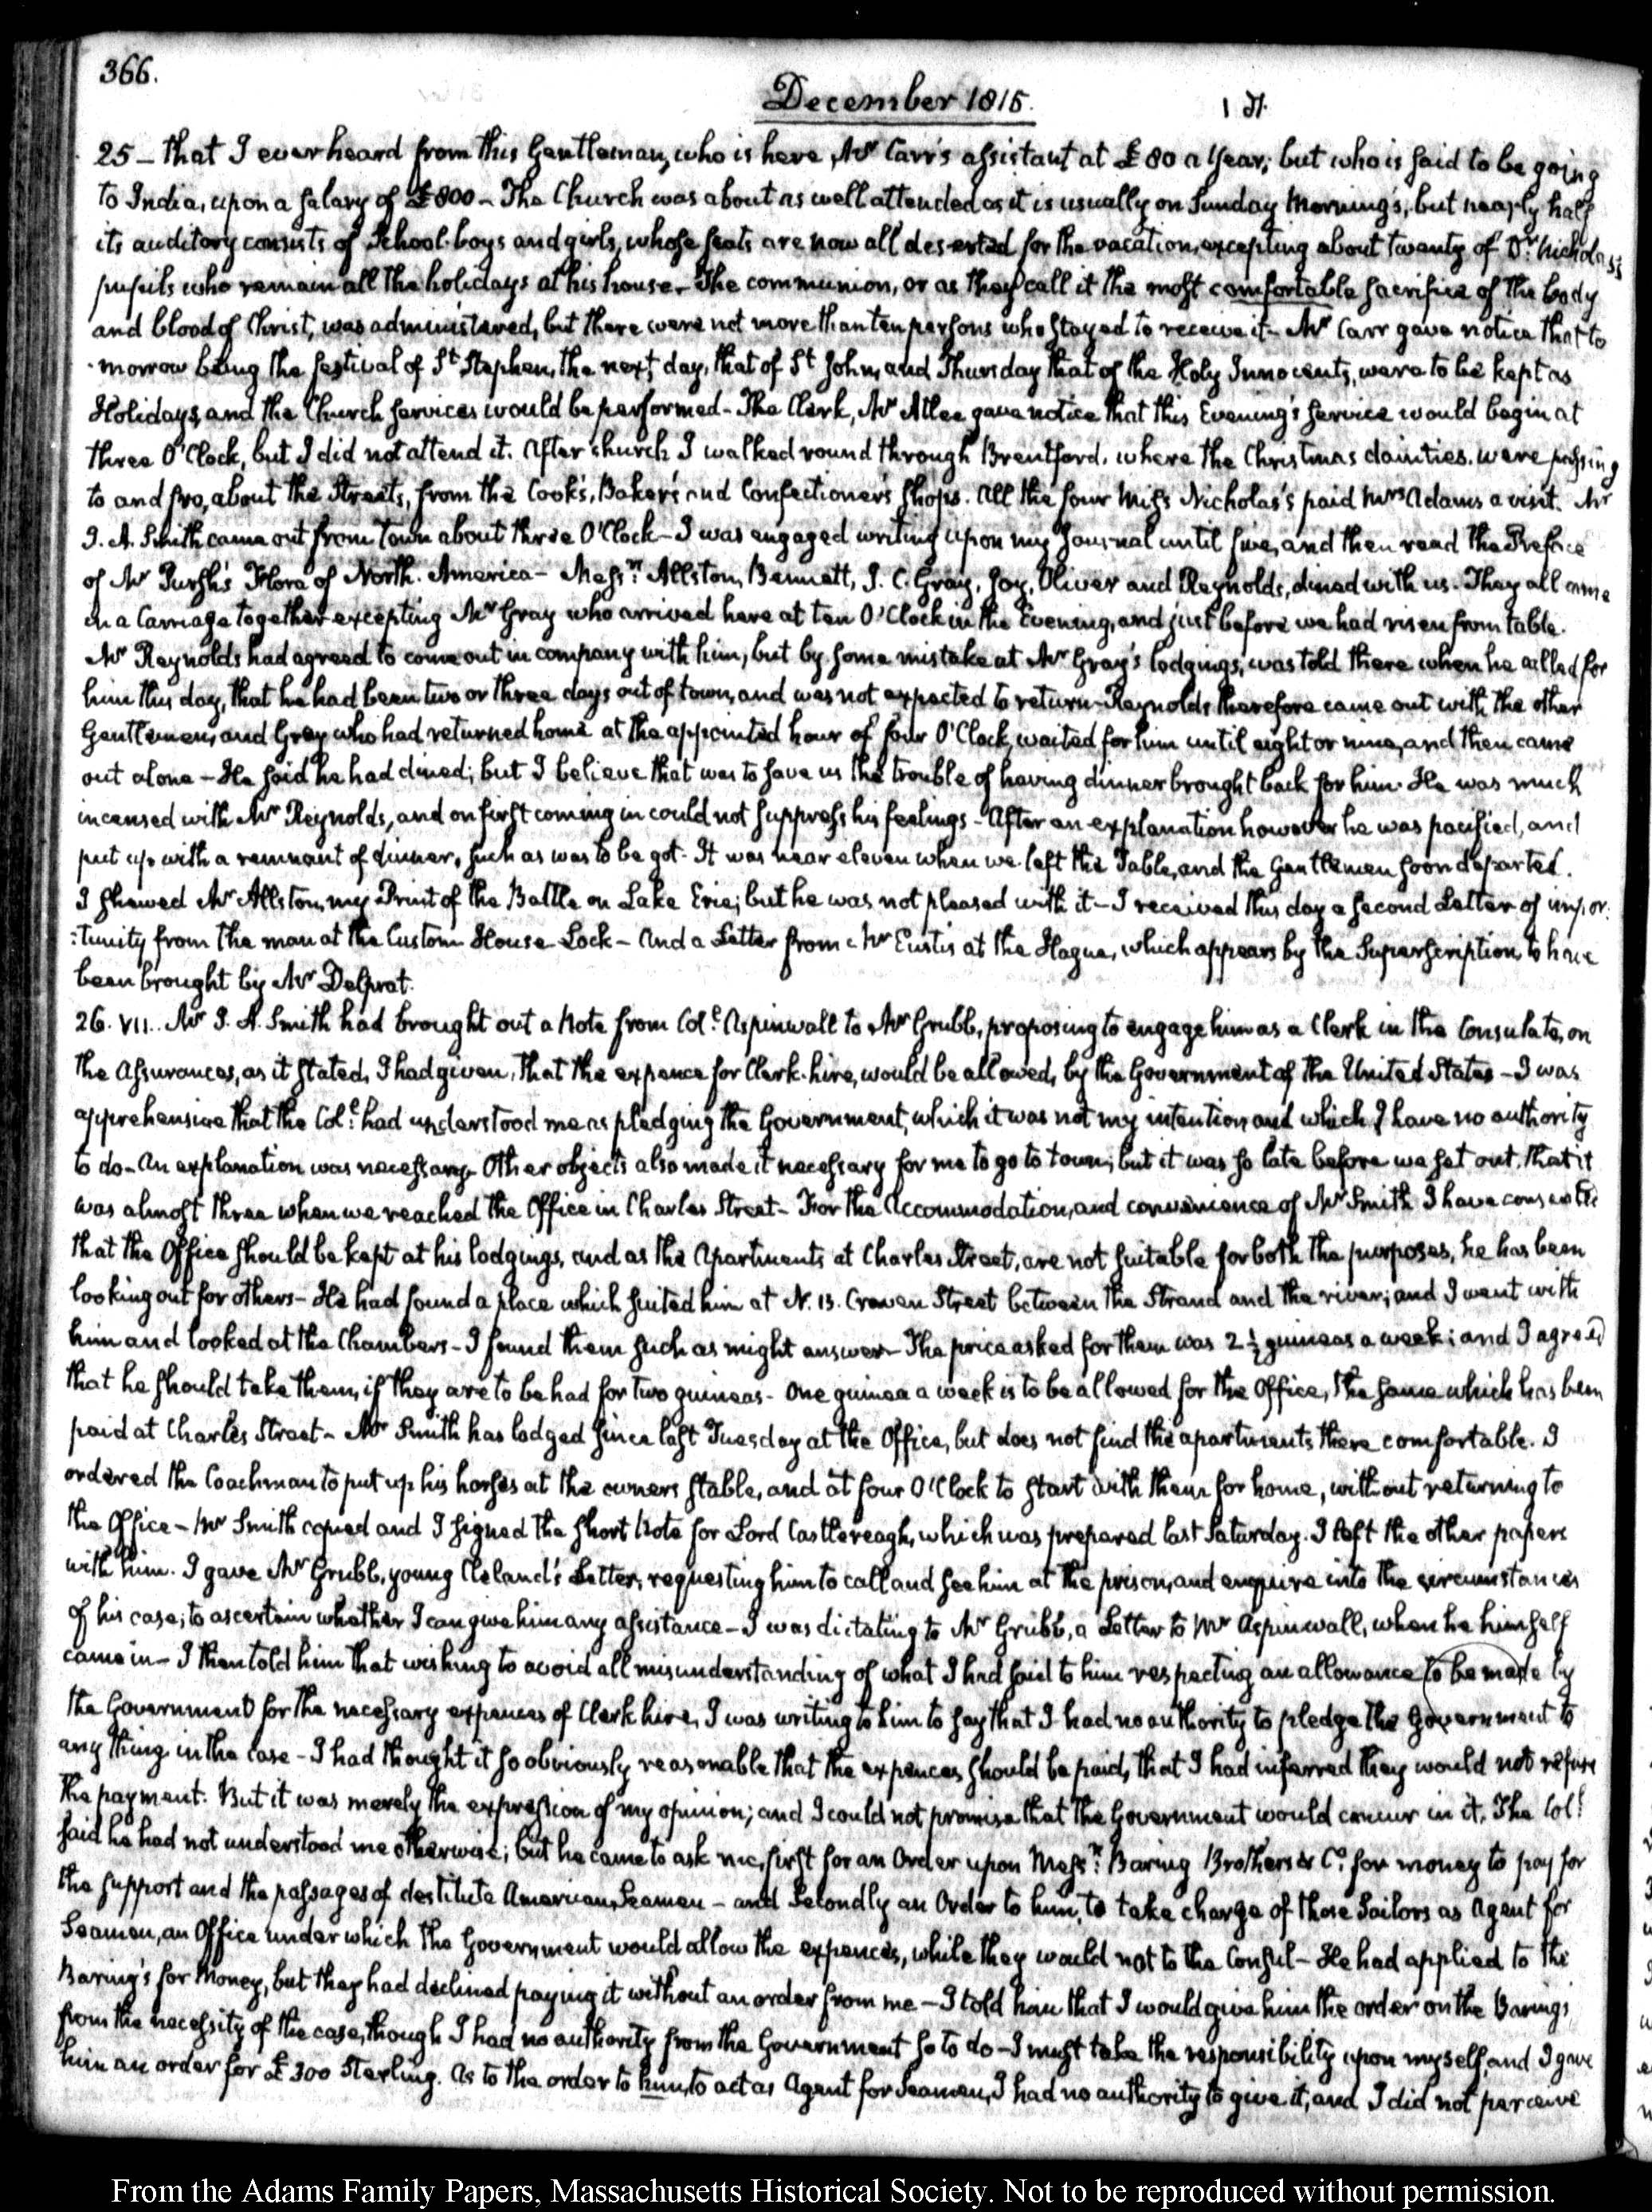 366.
December 1815.
25 – that I ever heard from this Gentleman, who is here, Mr Carr's assistant at £80 a year; but who is said to be going
to India, upon a salary of £800 – The Church was about as well attended as it is usually on Sunday Morning's, but nearly half
its auditory consists of School-boys and girls, whose seats are now all deserted for the vacation, excepting about twenty of Dr. Nicholas's
pupils who remain all the holidays at his house – The communion, or as they call it the most comfortable sacrifice of the body
and blood of Christ, was administered, but there were not more than ten persons who stayed to receive it – Mr Carr gave notice that to
-morrow being the festival of St Stephen, the next day, that of St John, and Thursday that of the Holy Innocents, were to be kept as
Holidays, and the Church services would be performed – The Clerk, Mr Atlee gave notice that this Evening's service would begin at
three O'Clock, but I did not attend it. After church I walked round through Brentford, where the Christmas dainties were passing
to and fro, about the Streets, from the Cook's, Baker's and Confectioner's shops. All the four Miss Nicholas's paid Mrs Adams a visit. Mr
J. A. Smith came out from town about three O'Clock – I was engaged writing upon my Journal until five, and then read the Preface
of Mr Pursh's Flora of North-America – Messrs. Allston, Bennett, J. C. Gray, Joy, Oliver and Reynolds, dined with us. They all came
in a Carriage together excepting Mr Gray who arrived here at ten O'Clock in the Evening, and just before we had risen from table.
Mr Reynolds had agreed to come out in company with him, but by some mistake at Mr Gray's lodgings, was told there when he called for
him this day, that he had been two or three days out of town, and was not expected to return – Reynolds therefore came out with the other
Gentlemen, and Gray who had returned home at the appointed hour of four O'Clock, waited for him until eight or nine, and then came
out alone – He said he had dined; but I believe that was to save us the trouble of having dinner brought back for him. He was much
incensed with Mr Reynolds, and on first coming in could not suppress his feelings – After an explanation however he was pacified, and
put up with a remnant of dinner, such as was to be got. It was near eleven when we left the Table, and the Gentlemen soon departed.
I shewed Mr Allston, my Print of the Battle on Lake Erie; but he was not pleased with it – I received this day a second Letter of impor-
:tunity from the man at the Custom House Lock – And a Letter from Mr Eustis at the Hague, which appears by the Superscription, to have
been brought by Mr Delprat.
26. VII. Mr J. A. Smith had brought out a Note from Coll. Aspinwall to Mr Grubb, proposing to engage him as a Clerk in the Consulate, on
the Assurances, as it stated, I had given, that the expence for Clerk-hire, would be allowed, by the Government of the United States – I was
apprehensive that the Coll. had understood me as pledging the Government, which it was not my intention and which I have no authority
to do – An explanation was necessary – Other objects also made it necessary for me to go to town; but it was so late before we set out, that it
was almost three when we reached the Office in Charles Street – For the Accommodation, and convenience of Mr Smith I have consented
that the Office should be kept at his lodgings, and as the Apartments at Charles Street, are not suitable for both the purposes, he has been
looking out for others – He had found a place which suited him at N. 13. Craven Street between the Strand and the river; and I went with
him and looked at the Chambers – I found them such as might answer – The price asked for them was 2½ guineas a week; and I agreed
that he should take them, if they are to be had for two guineas – One guinea a week is to be allowed for the Office, the same which has been
paid at Charles Street – Mr Smith has lodged since last Tuesday at the Office, but does not find the apartments there comfortable. I
ordered the Coachman to put up his horses at the owners stable, and at four O'Clock to start with them for home, without returning to
the Office – Mr Smith copied and I signed the short Note for Lord Castlereagh, which was prepared last Saturday. I left the other papers
with him. I gave Mr Grubb, young Cleland's Letter, requesting him to call and see him at the prison, and enquire into the circumstances
of his case; to ascertain whether I can give him any assistance – I was dictating to Mr Grubb, a Letter to Mr Aspinwall, when he himself
came in – I then told him that wishing to avoid all misunderstanding of what I had said to him respecting an allowance to be made by
the Government for the necessary expences of Clerk hire, I was writing to him to say that I had no authority to pledge the Government to
any thing in the case – I had thought it so obviously reasonable that the expences should be paid, that I had inferred they would not refuse
the payment. But it was merely the expression of my opinion; and I could not promise that the Government would concur in it. The Coll.
said he had not understood me otherwise; but he came to ask me, first for an Order upon Messrs. Baring Brothers & Co. for money to pay for
the support and the passages of destitute American Seamen – and Secondly an Order to him, to take charge of those Sailors as Agent for
Seamen, an Office under which the Government would allow the expences, while they would not to the Consul – He had applied to the
Baring's for Money, but they had declined paying it without an order from me – I told him that I would give him the order on the Barings,
from the necessity of the case, though I had no authority from the Government so to do – I must take the responsibility upon myself, and I gave
him an order for £300 Sterling. As to the order to him, to act as Agent for Seamen, I had no authority to give it, and I did not perceive
From the Adams Family Papers, Massachusetts Historical Society. Not to be reproduced without permission.